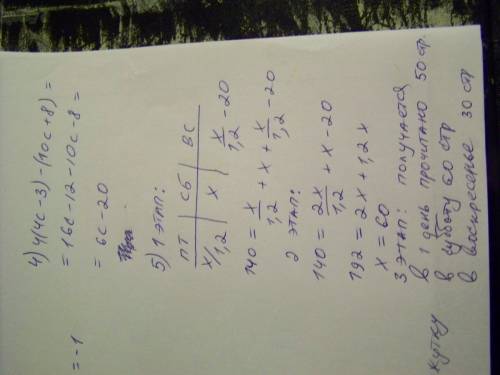 4) 4(4с-3)-(10с+8)=
= 16с-12-10с-8=
= 6с-20
= -1
5) 1 этап:
ПТ | СБ | ВС
x/1,2 | x | x/1,2 -20
140 = x/1,2 + x + x/1,2 -20
2 этап:
140 = 2x/1,2 + x -20
192 = 2x + 1,2x
x = 60
3 этап: получается
в 1 день прочитано 50 стр.
в субботу 60 стр
в воскресенье 30 стр